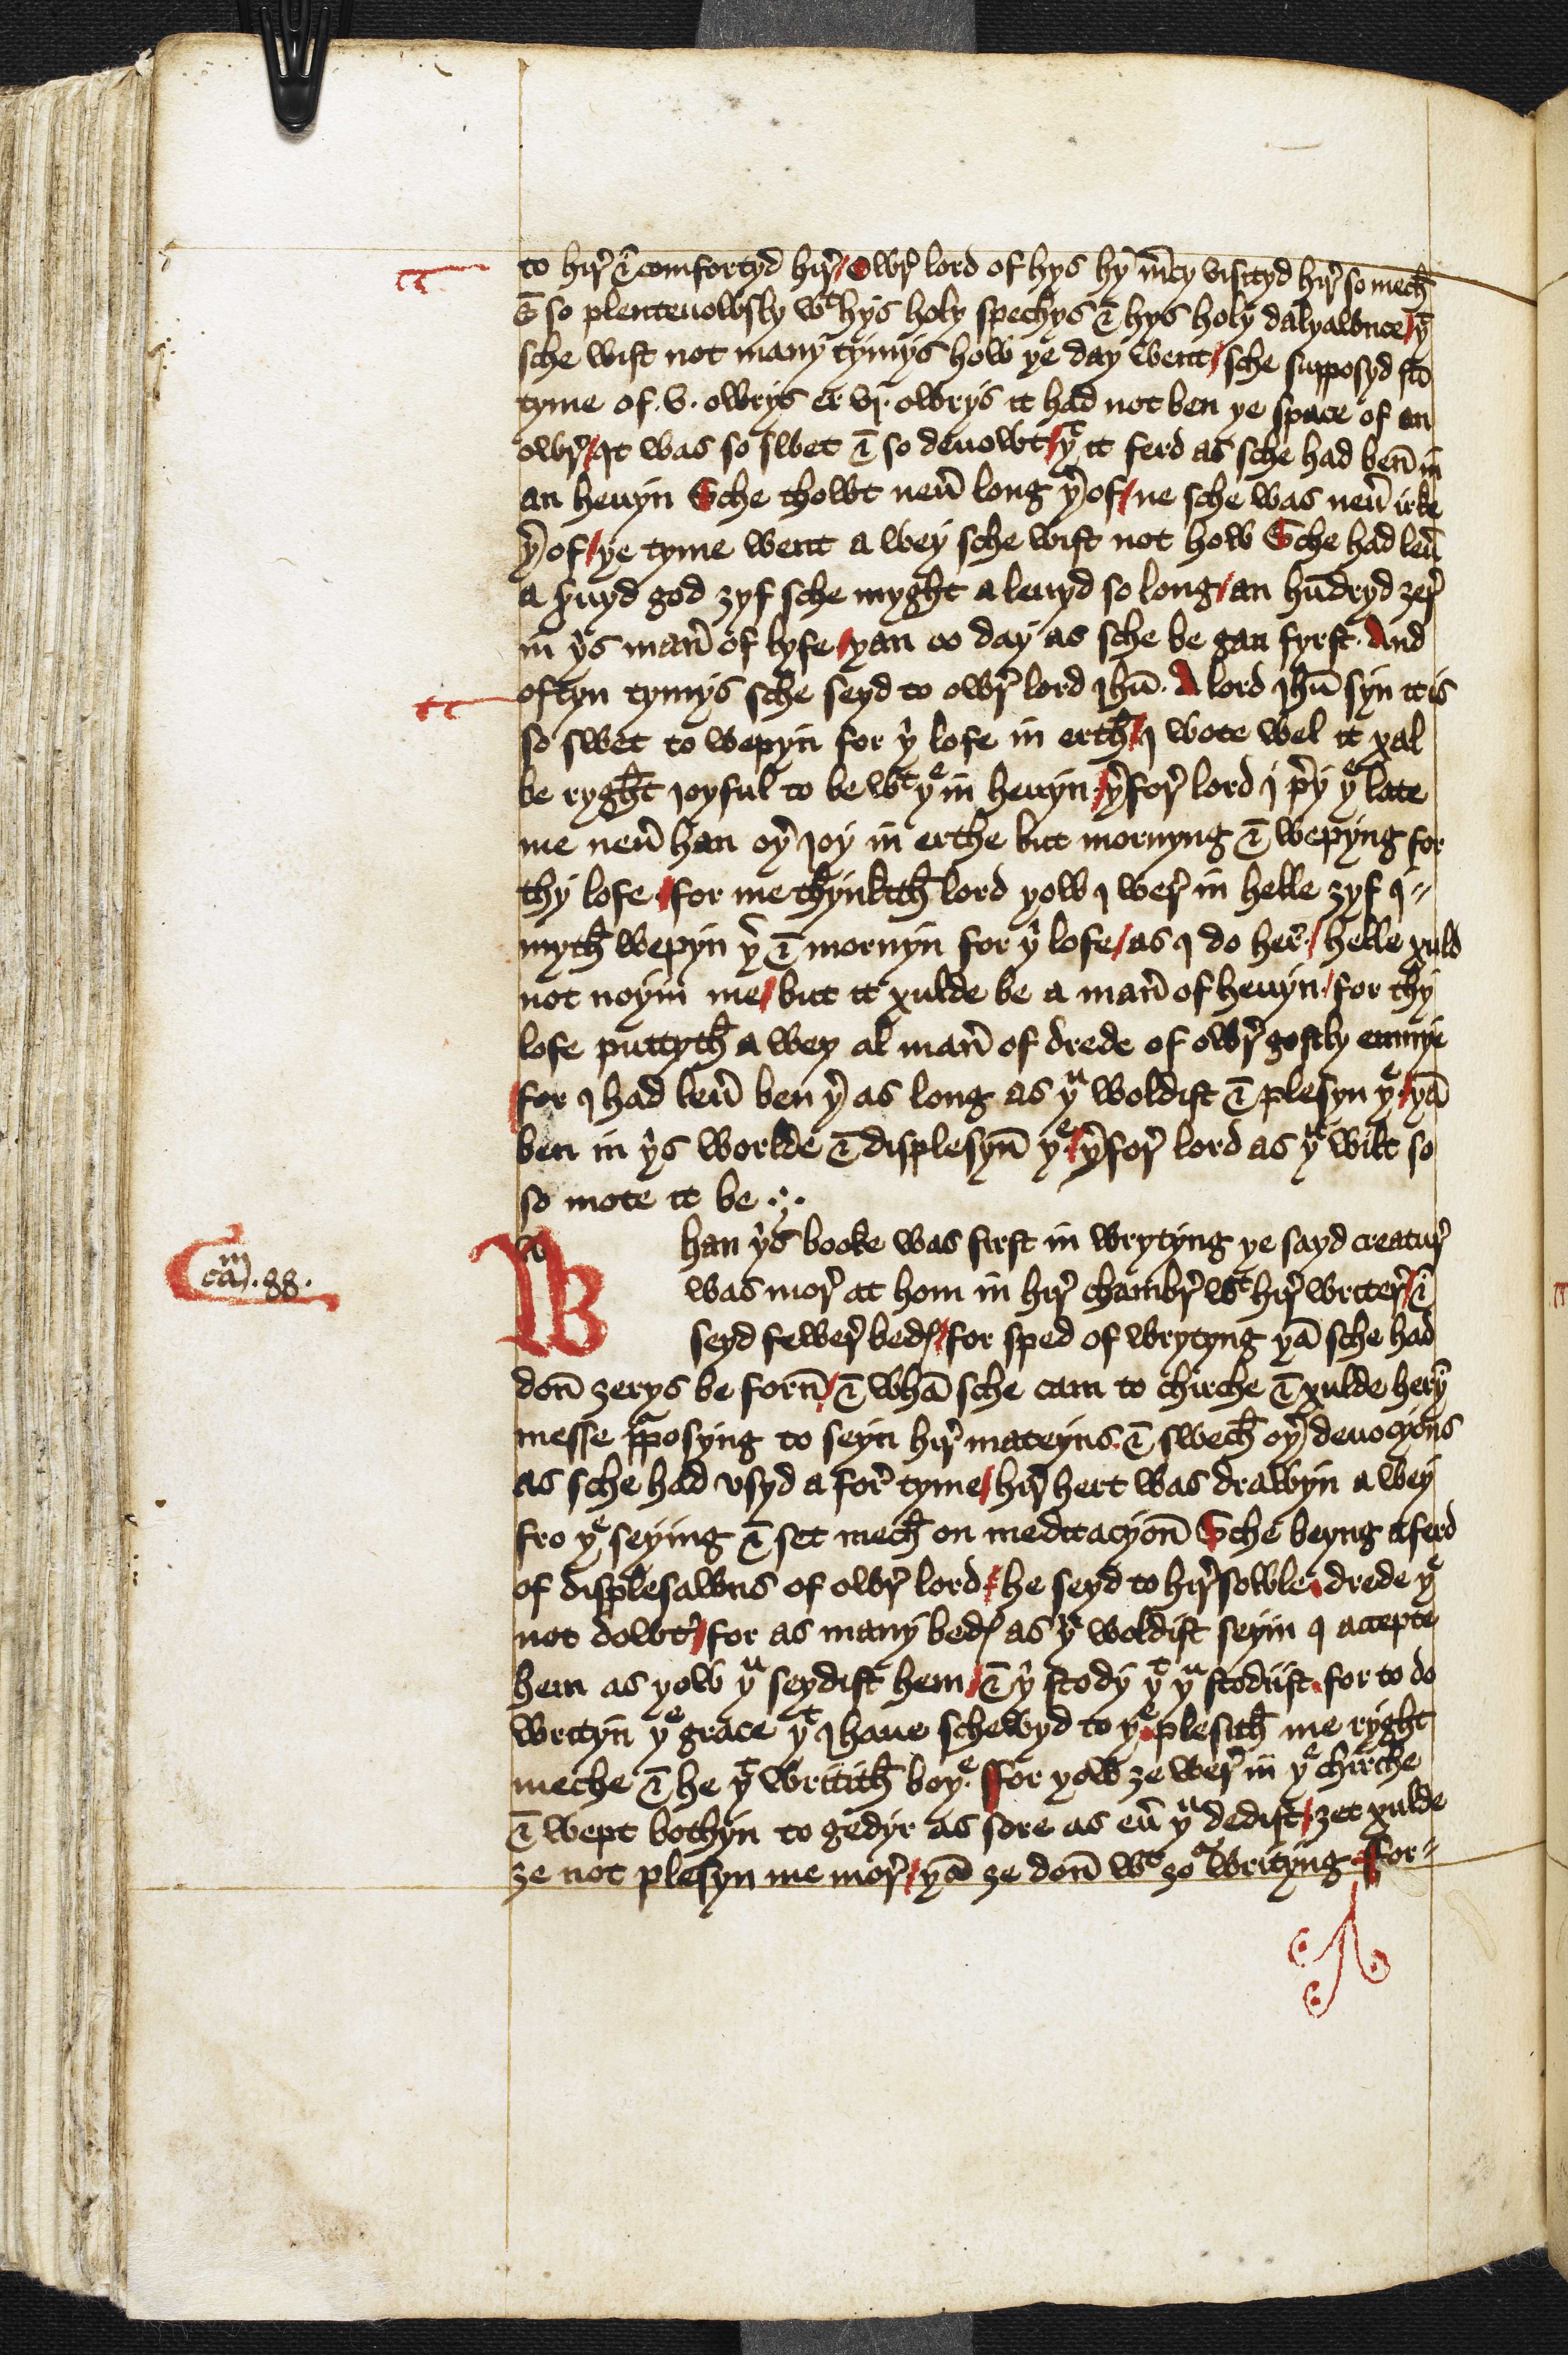 to hir̛ & comfortyd hir̛ / Owr̛ lord of hys hy m̄cy visityd hir̛ so mech̄
& so plentevowsly wͭ hys holy spechys & hys holy dalyawnce / yͭ
sche wist not many tymys how ye day went / sche supposyd sūtyme
tyme of .v. owrys er vj. owrys it had not ben ye space of an
owr̛ / It was so swet & so devowt / yͭ it ferd as sche had ben̄ in
an hevyn Sche thowt neư long y̛of / ne sche was neư irke
y̛of / ye tyme went a wey sche wist not how Sche had leư
a s̛uyd god ȝyf sche myght a leuyd so long / an hūdryd ȝer̛
in yⁱs man̛ of lyfe / yan oo day as sche be gan fyrst. And
oftyn tymys sche seyd to owr̛ lord ihū. A lord ihū syn it is
so swet to wepyn for yⁱ lofe in erth̄ / I wote wel it xal
be ryght joyful to be wͭ yͤ in hevyn / y̛for̛ lord I p̛y yͤ late
me neư han oy̛ joy in erthe but mornyng & wepyng for
thy lofe / for me thynkith̄ lord yow I wer̛ in helle ȝyf I
myth̄ wepyn y̛ & mornyn for yⁱ lofe / as I do her̛ / helle xuld
not noyin me / but it xulde be a man̛ of hevyn / for thy
lofe puttyth̄ a wey al man̛ of drede of owr̛ gostly enmye
/ for I had leư ben y̛ as long as yᵘ woldist & plesyn yͤ / yā
ben in yⁱs worlde & displesyn̄ yͤ / y̛for̛ lord as yᵘ wilt so
so mote it be
Whan yⁱs booke was first in wrytyng ye sayd creatur̛
cam̄ .88.
was mor̛ at hom in hir̛ chambr̛ wͭ hir̛ writer̛ / &
seyd fewer̛ bedꝭ / for sped of wrytyng yā sche had
don̄ ȝerys be forn̄ / & whā sche cam to chirche & xulde heryn
messe p̱posyng to seyn hir̛ mateyns. & swech̄ oy̛ devocyons
as sche had vsyd a for̛ tyme / hir̛ hert was drawyn a wey
fro yͤ seying & set mech̄ on meditacyon̄ Sche beyng aferd
of displesawns of owr̛ lord / he seyd to hir̛ sowle drede yͤ
not dowt̛ / for as many bedꝭ as yᵘ woldist seyin I accepte
hem as yow yᵘ seydist hem / & yⁱ stody yͭ yᵘ stodiist for to do
writyn yͤ grace yͭ I haue schewyd to yͤ plesith̄ me ryght
meche & he yͭ writith̄ boyͤ. For yow ȝe wer̛ in yͤ chirche
& wept bothyn to gedyr as sore as eư yᵘ dedist / ȝet xulde
ȝe not plesyn me mor̛ / yā ȝe don̄ wͭ ȝoʳ writyng for